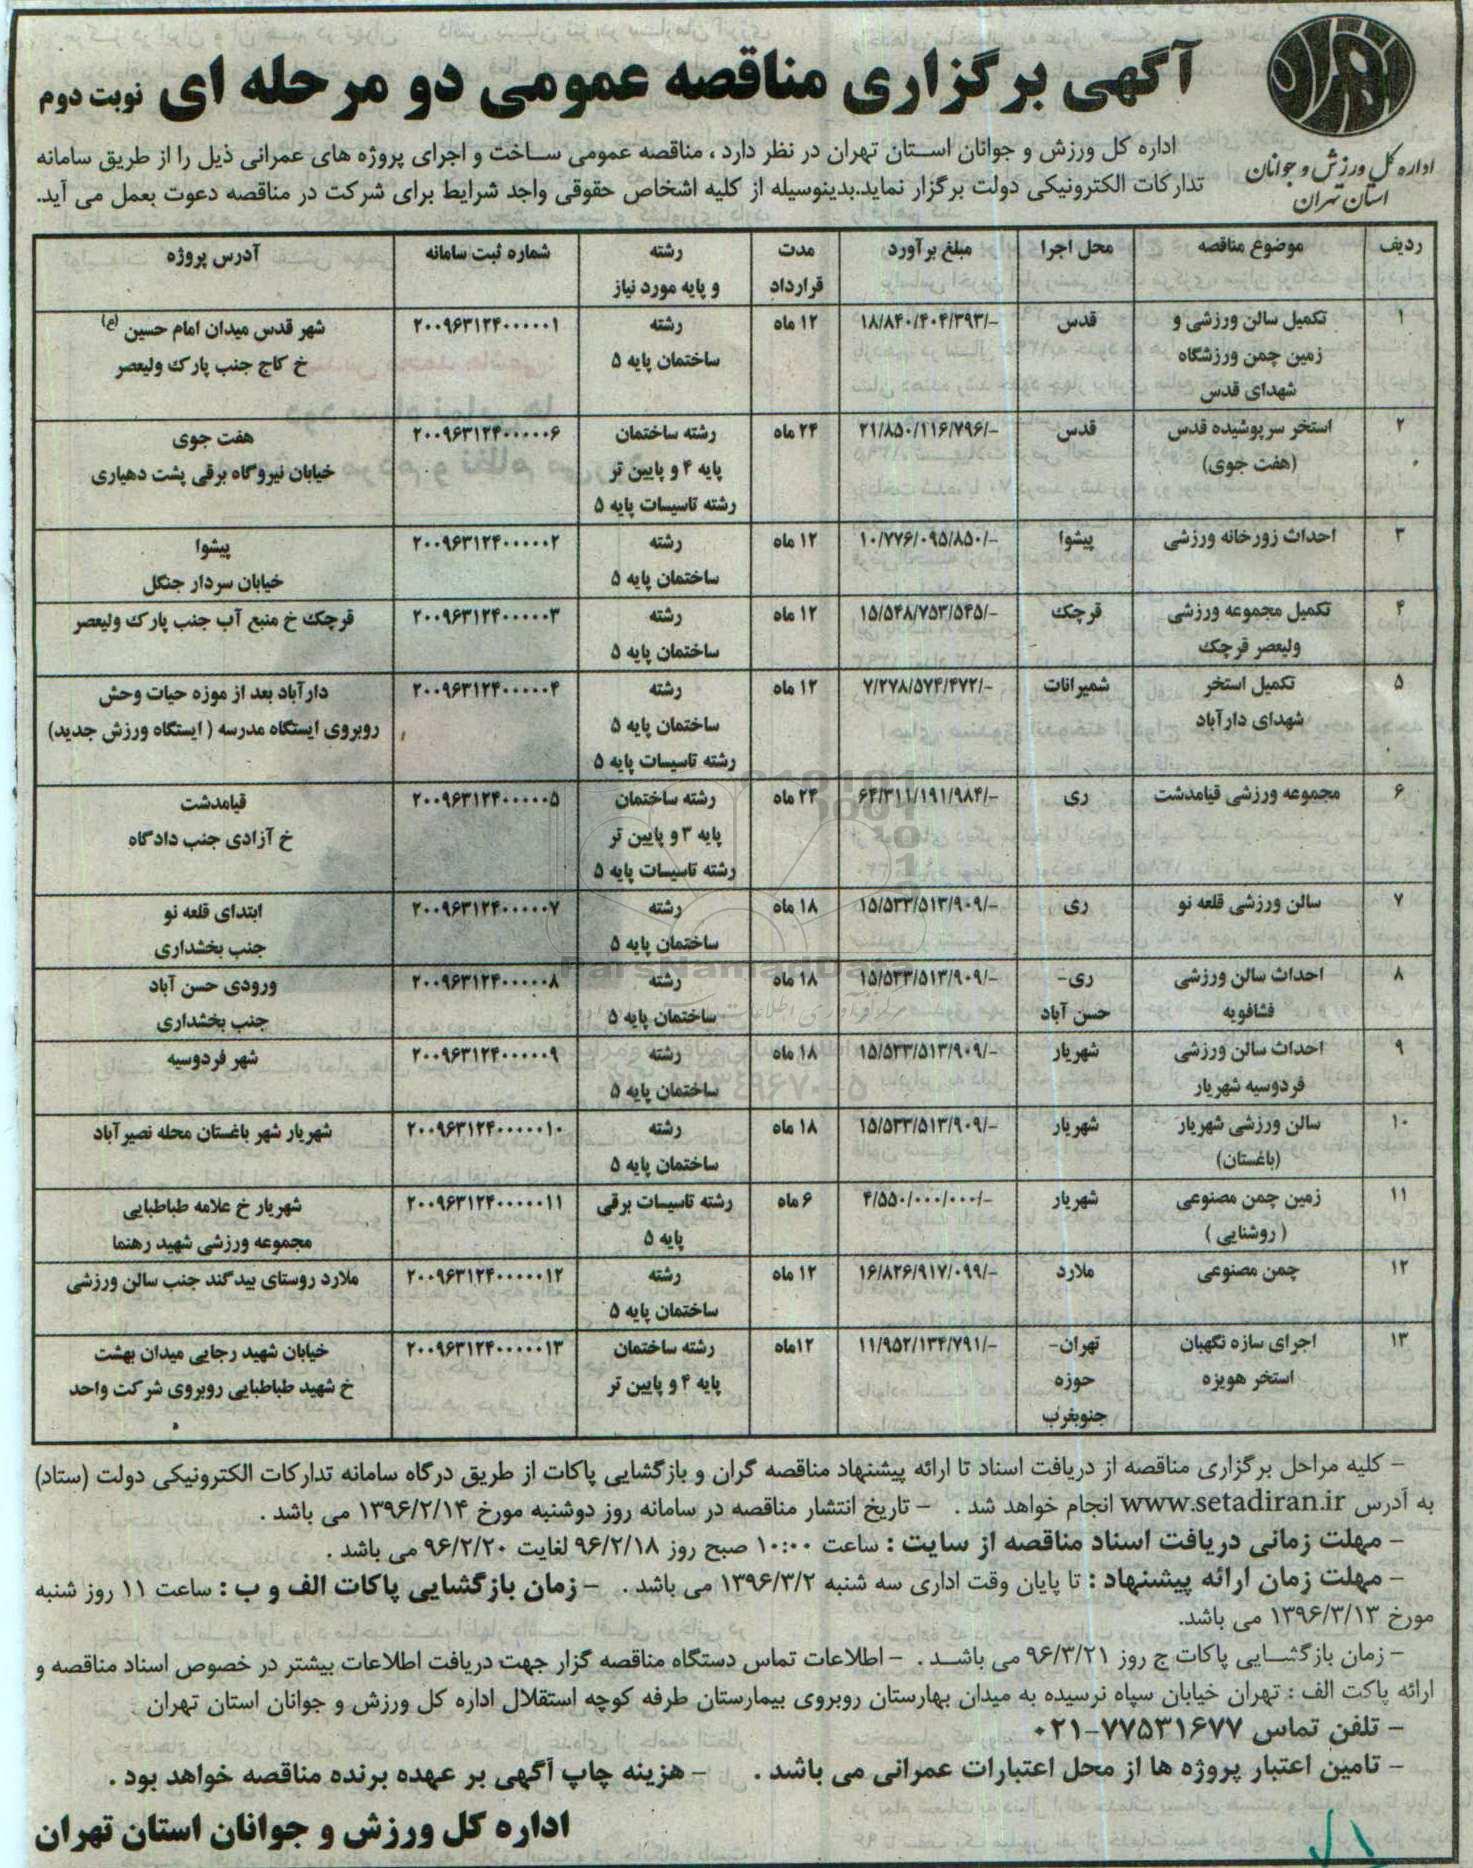 آگهی برگزاری مناقصه عمومی دو مرحله ای نوبت دوم
اداره کل ورزش و جوانان
استان تهران
اداره کل ورزش و جوانان استان تهران در نظر دارد ، مناقصه عمومی ساخت و اجرای پروژه های عمرانی ذیل را از طریق سامانه
تدارکات الکترونیکی دولت برگزار نماید.بدینوسیله از کلیه اشخاص حقوقی واجد شرایط برای شرکت در مناقصه دعوت بعمل می آید.
ردیف موضوع مناقصه محل اجرا مبلغ برآورد مدت قرارداد رشته و پایه مورد نیاز شماره ثبت سامانه آدرس پروژه
۱ تکمیل سالن ورزشی و زمین چمن ورزشگاه شهدای قدس قدس ۱۸/۸۴۰/۴۰۴/۳۹۳/- ۱۲ ماه رشته ساختمان پایه ۵ ۲۰۰۹۶۳۱۲۴۰۰۰۰۰۱ شهر قدس میدان امام حسین (ع) خ کاج جنب پارک ولیعصر
۲ استخر سرپوشیده قدس (هفت جوی) قدس ۲۱/۸۵۰/۱۱۶/۷۹۶/- ۲۴ ماه رشته ساختمان پایه ۴ و پایین تر رشته تاسیسات پایه ۵ ۲۰۰۹۶۳۱۲۴۰۰۰۰۰۶ هفت جوی خیابان نیروگاه برقی پشت دهیاری
۳ احداث زورخانه ورزشی پیشوا ۱۰/۷۷۶/۰۹۵/۸۵۰/- ۱۲ ماه رشته ساختمان پایه ۵ ۲۰۰۹۶۳۱۲۴۰۰۰۰۰۲ پیشوا خیابان سردار جنگل
۴ تکمیل مجموعه ورزشی ولیعصر قرچک قرچک ۱۵/۵۴۸/۷۵۳/۵۴۵/- ۱۲ ماه رشته ساختمان پایه ۵ ۲۰۰۹۶۳۱۲۴۰۰۰۰۰۳ قرچک خ منبع آب جنب پارک ولیعصر
۵ تکمیل استخر شهدای دارآباد شمیرانات ۷/۲۷۸/۵۷۴/۴۷۲/- ۱۲ ماه رشته ساختمان پایه ۵ رشته تاسیسات پایه ۵ ۲۰۰۹۶۳۱۲۴۰۰۰۰۰۴ دارآباد بعد از موزه حیات وحش روبروی ایستگاه مدرسه ( ایستگاه ورزش جدید)
۶ مجموعه ورزشی قیامدشت ری ۶۴/۳۱۱/۱۹۱/۹۸۴/- ۲۴ ماه رشته ساختمان پایه ۳ و پایین تر رشته تاسیسات پایه ۵ ۲۰۰۹۶۳۱۲۴۰۰۰۰۰۵ قیامدشت خ آزادی جنب دادگاه
۷ سالن ورزشی قلعه نو ری ۱۵/۵۳۳/۵۱۳/۹۰۹/- ۱۸ ماه رشته ساختمان پایه ۵ ۲۰۰۹۶۳۱۲۴۰۰۰۰۰۷ ابتدای قلعه نو جنب بخشداری
۸ احداث سالن ورزشی فشافویه ری- حسن آباد ۱۵/۵۳۳/۵۱۳/۹۰۹/- ۱۸ ماه رشته ساختمان پایه ۵ ۲۰۰۹۶۳۱۲۴۰۰۰۰۰۸ ورودی حسن آباد جنب بخشداری
۹ احداث سالن ورزشی فردوسیه شهریار شهریار ۱۵/۵۳۳/۵۱۳/۹۰۹/- ۱۸ ماه رشته ساختمان پایه ۵ ۲۰۰۹۶۳۱۲۴۰۰۰۰۰۹ شهر فردوسیه
۱۰ سالن ورزشی شهریار (باغستان) شهریار ۱۵/۵۳۳/۵۱۳/۹۰۹/- ۱۸ ماه رشته ساختمان پایه ۵ ۲۰۰۹۶۳۱۲۴۰۰۰۰۱۰ شهریار شهر باغستان محله نصیرآباد
۱۱ زمین چمن مصنوعی ( روشنایی ) شهریار ۴/۵۵۰/۰۰۰/۰۰۰/- ۶ ماه رشته تاسیسات برقی پایه ۵ ۲۰۰۹۶۳۱۲۴۰۰۰۰۱۱ شهریار خ علامه طباطبایی مجموعه ورزشی شهید رهنما
۱۲ چمن مصنوعی ملارد ۱۶/۸۲۶/۹۱۷/۰۹۹/- ۱۲ ماه رشته ساختمان پایه ۵ ۲۰۰۹۶۳۱۲۴۰۰۰۰۱۲ ملارد روستای بیدگنه جنب سالن ورزشی
۱۳ اجرای سازه نگهبان استخر هویزه تهران- حوزه جنوبغرب ۱۱/۹۵۲/۱۳۴/۷۹۱/- ۱۲ماه رشته ساختمان پایه ۴ و پایین تر ۲۰۰۹۶۳۱۲۴۰۰۰۰۱۳ خیابان شهید رجایی میدان بهشت خ شهید طباطبایی روبروی شرکت واحد
- کلیه مراحل برگزاری مناقصه از دریافت اسناد تا ارائه پیشنهاد مناقصه گران و بازگشایی پاکات از طریق درگاه سامانه تدارکات الکترونیکی دولت (ستاد)
به آدرس www.setadiran.ir انجام خواهد شد . - تاریخ انتشار مناقصه در سامانه روز دوشنبه مورخ ۱۳۹۶/۲/۱۴ می باشد .
- مهلت زمانی دریافت اسناد مناقصه از سایت : ساعت ۱۰:۰۰ صبح روز ۹۶/۲/۱۸ لغایت ۹۶/۲/۲۰ می باشد .
- مهلت زمان ارائه پیشنهاد : تا پایان وقت اداری سه شنبه ۱۳۹۶/۳/۲ می باشد . - زمان بازگشایی پاکات الف و ب : ساعت ۱۱ روز شنبه
مورخ ۱۳۹۶/۳/۱۳ می باشد.
- زمان بازگشایی پاکات ج روز ۹۶/۳/۲۱ می باشد . - اطلاعات تماس دستگاه مناقصه گزار جهت دریافت اطلاعات بیشتر در خصوص اسناد مناقصه و
ارائه پاکت الف : تهران خیابان سپاه نرسیده به میدان بهارستان روبروی بیمارستان طرفه کوچه استقلال اداره کل ورزش و جوانان استان تهران
- تلفن تماس ۷۷۵۳۱۶۷۷-۰۲۱
- تامین اعتبار پروژه ها از محل اعتبارات عمرانی می باشد . - هزینه چاپ آگهی بر عهده برنده مناقصه خواهد بود .
اداره کل ورزش و جوانان استان تهران